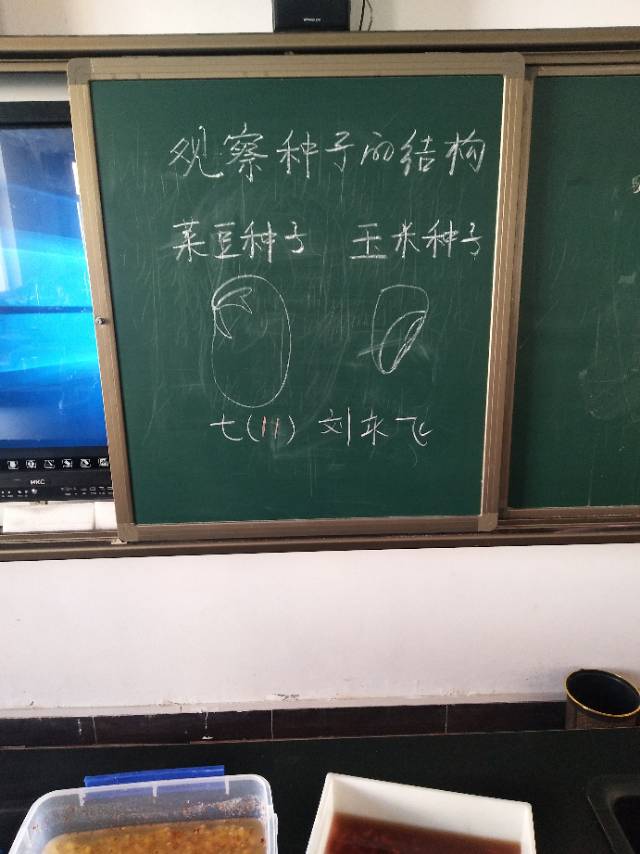 观察种子的结构
菜豆种子 玉米种子
七(11) 刘永飞
HKC